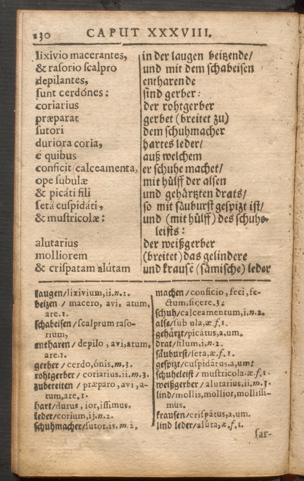 230 CAPUT XXXVIII.
lixivio macerantes,
& rasorio scalpro
depilantes,
sunt cerdónes:
coriarius
præparat
sutori
duriora coria,
è quibus
conficit calceamenta,
ope subulæ
& picáti fili
setâ cuspidáti,
& mustricolæ:
alutarius
molliorem
& crispatam alútam
in der laugen beitzende/
und mit dem schabeisen
entharende
sind gerber:
der rohtgerber
gerbet (breitet zu)
dem schuhmacher
hartes leder/
auß welchem
er schuhe machet/
mit hülff der alsen
und gehärtzten drats/
so mit säuburst gespizt ist/
und (mit hülff) des schuhe-
leists:
der weißgerber
(breitet) das gelindere
und krause (sämische) leder
laugen/lixivium, ii.n.2.
beizen / macero, avi, atum,
are.1.
schabeisen / scalprum raso-
rium,
entharen / depilo, avi, atum,
are.1.
gerber / cerdo, ónis.m.3.
rohtgerber / coriarius.ii.m.3.
zubereiten / præparo, avi, a-
tum, are.1.
hart/durus, ior, issimus.
leder/corium, ij.n.2.
schuhmacher/sutor.is.m.3,
machen/conficio, feci, fe-
ctum, ficere.3.
schuh/calceamentum, i.n.2.
alse/subula, æ.f.1.
gehärtzt/picátus, a, um.
drat/filum, i.n.2.
säuburst/seta, æ.f.1.
gespizt/cuspidátus.a, um.
schuheleist / mustricola.æ.f.1.
weißgerber / alutarius.ii.m.3.
lind/mollis, mollior, mollissi-
mus.
krausen/crispátus, a, um.
lind leder/alúta, æ.f.1.
sar-